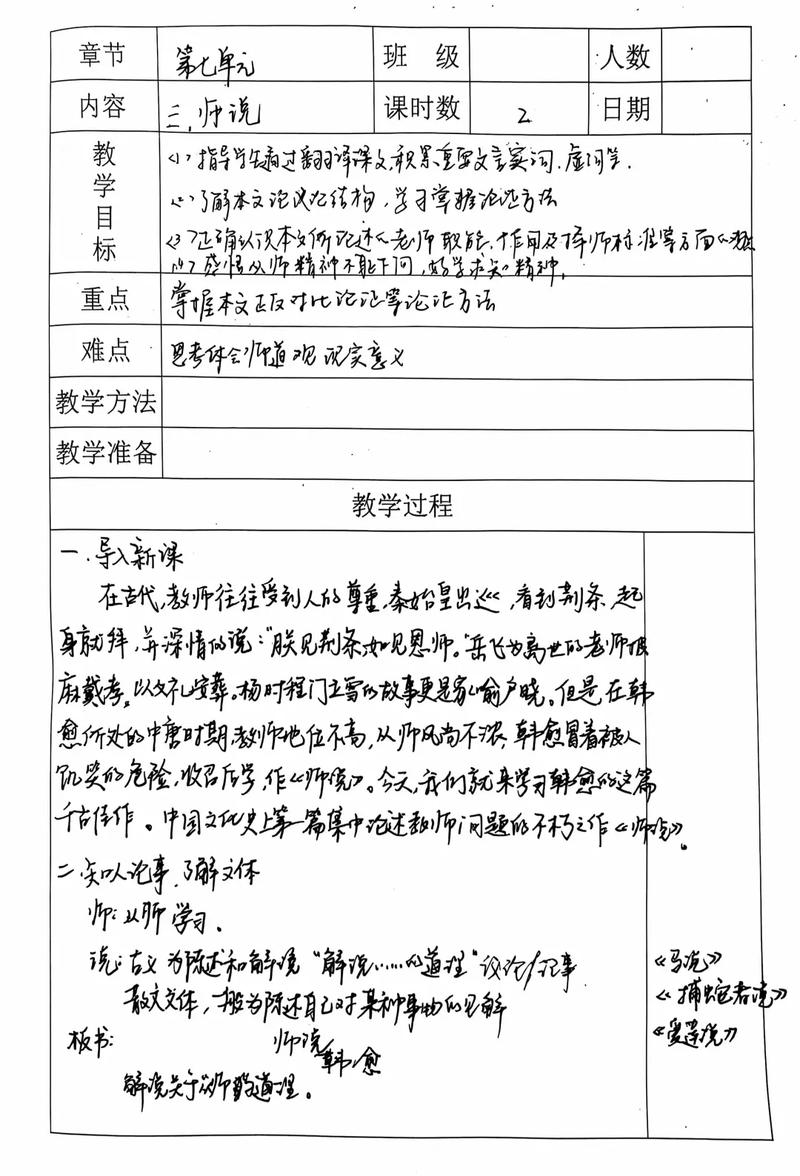 章节 第七单元 班 级 人数
内容 三、师说 课时数 2 日期
教学目标
<1>指导学生通过翻译课文,积累重要文言实词、虚词等.
<2>了解本文论议论结构,学习掌握论证方法
<3>正确认识本文所论述《老师职能、作用及择师标准等方面
<4>感悟从师精神不耻下问,好学求知精神。
重点 掌握本文正反对比论证等论证方法
难点 思考体会师道观现实意义
教学方法
教学准备
教学过程
一.导入新课
在古代,教师往往受到人的尊重,秦始皇出巡,看到荆条,起
身就拜,并深情的说:“朕见荆条如见恩师。”岳飞为离世的老师披
麻戴孝,以父礼安葬。杨时程门立雪的故事更是家喻户晓。但是,在韩
愈所处的中唐时期,教师地位不高,从师风尚不浓,韩愈冒着被人
讥笑的危险,收召后学,作《师说》。今天,我们就来学习韩愈的这篇
千古佳作。中国文化史上第一篇集中论述教师问题的不朽之作《师说》。
二.知人论事,了解文体
师:从师学习.
说:古义为陈述和解说“解说……的道理”议论/记事 《马说》
散文文体,一般为陈述自己对某种事物的见解 《捕蛇者说》
板书: 师说 《爱莲说》
韩愈
解说关于从师的道理。